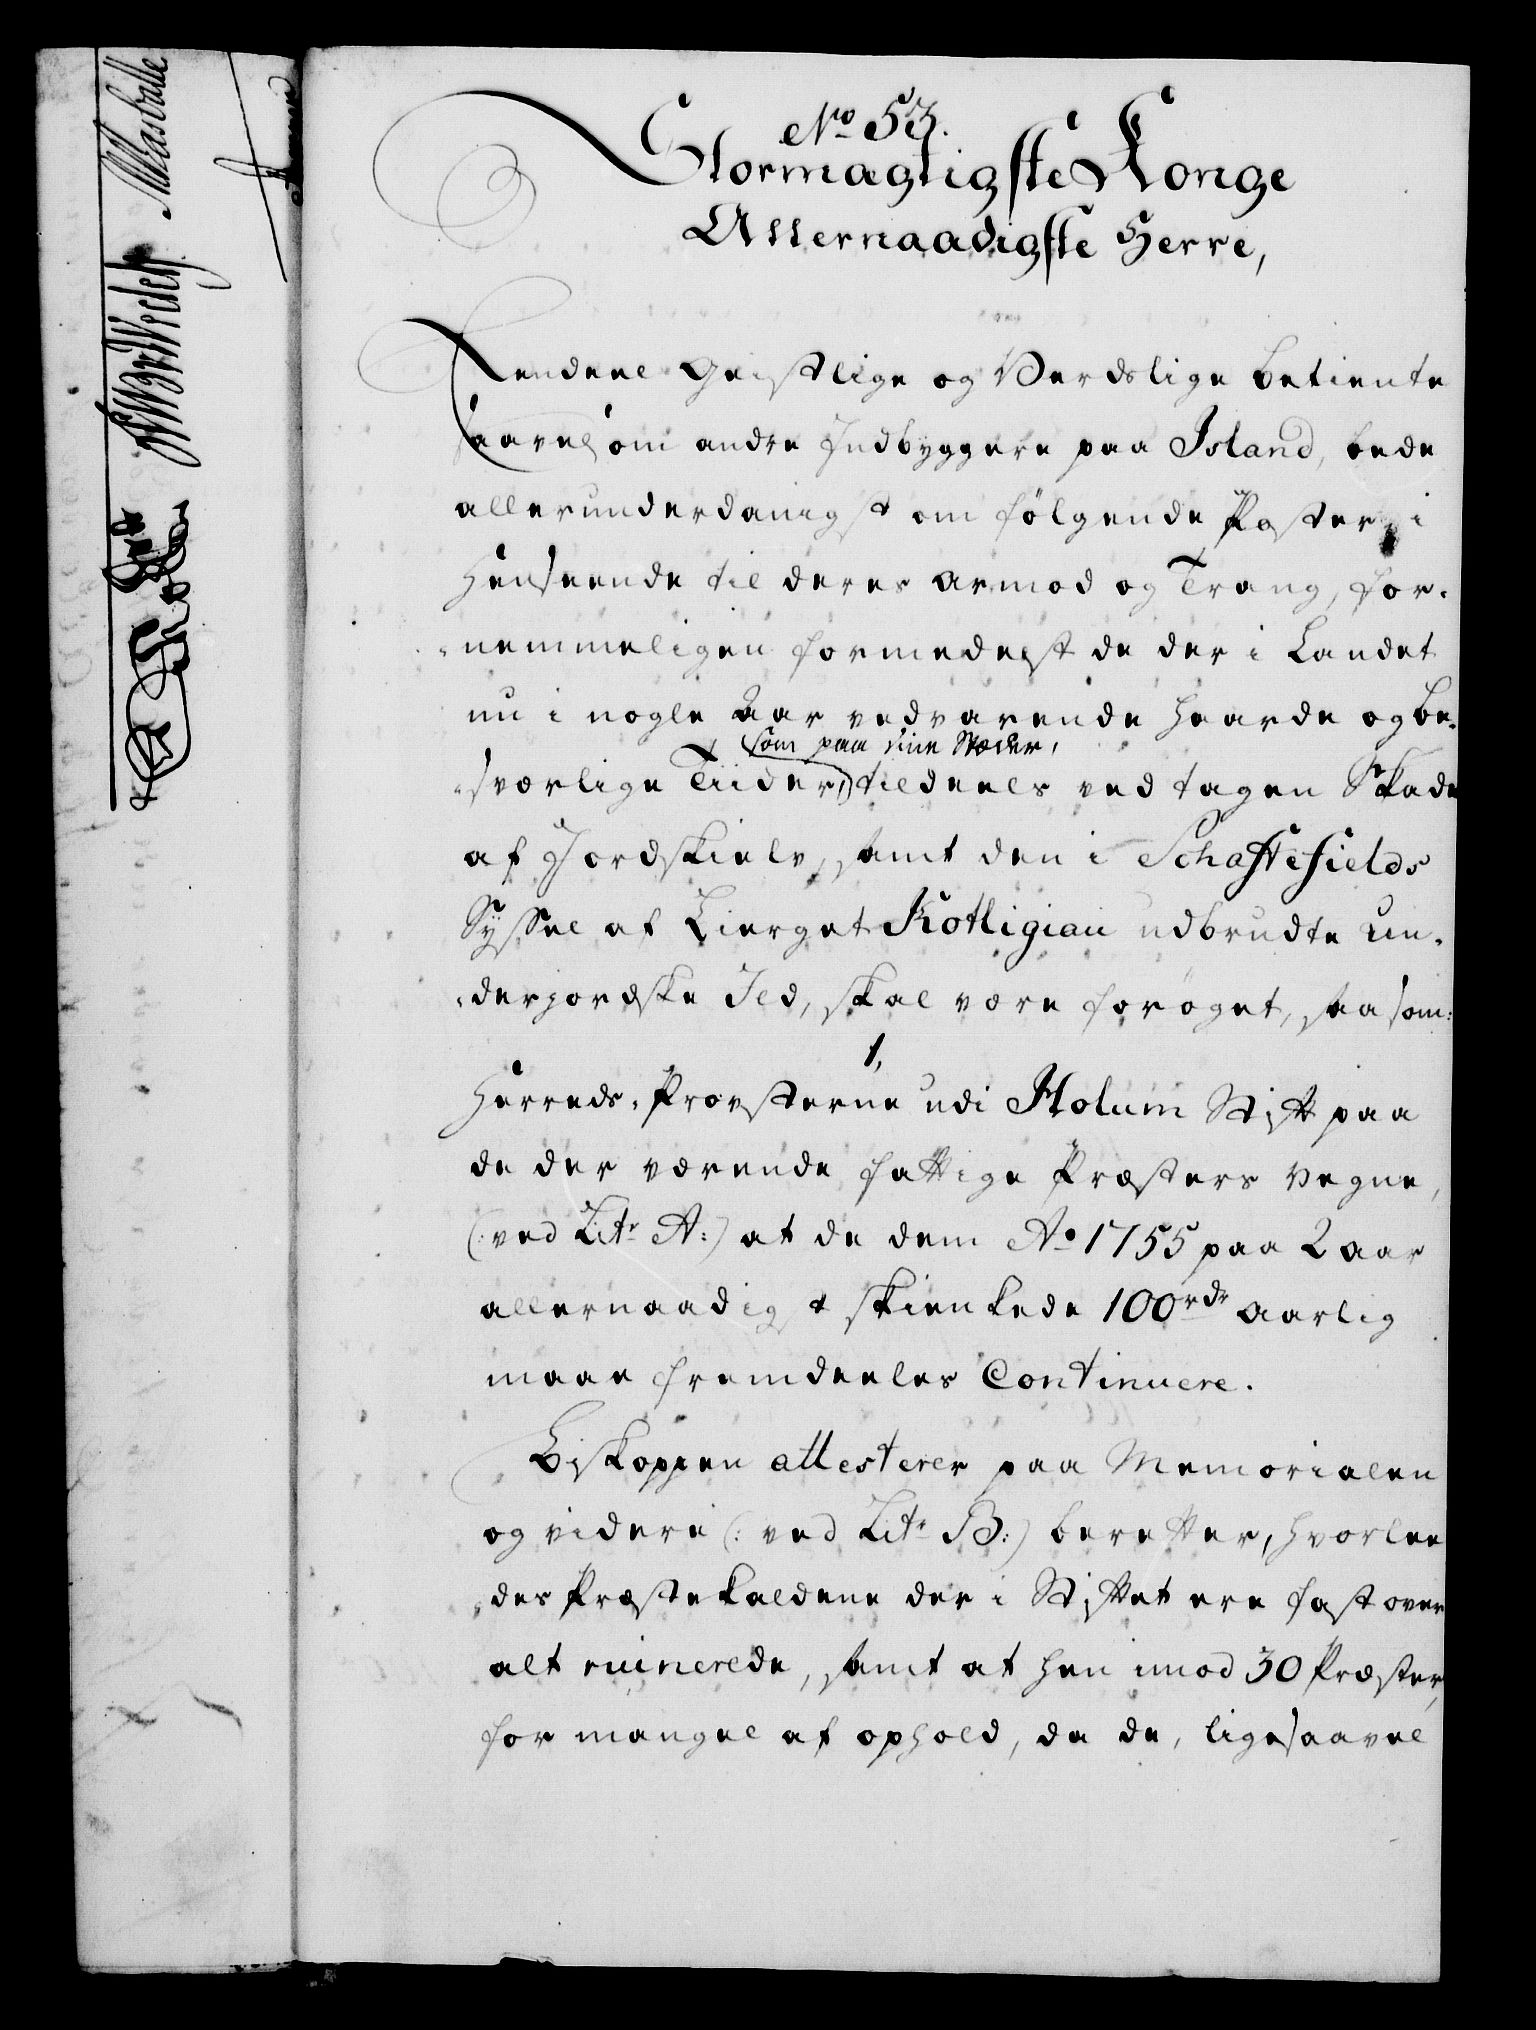 No 53.
Stormægtigste Konge
Allernaadigste Herre,
Eendeel Geistlige og Verdslige betiente
saavelsom andre Indbyggere paa Island, bede
allerunderdanigst om følgende Poster, i
Henseende til deres Armod og Trang, for-
nemmeligen formedelst de der i Landet
nu i nogle Aar vedvarende haarde og be-
som paa sine Stæder,
sværlige Tiider, tildeels ved tagen Skade
af Jordskielv, samt den i Schaftefields
Syssel af Bierget Kotligiau udbrudte un-
derjordske Ild, skal være forøget, saasom:
1,
Herreds-Provsterne udi Holum Stift paa
de der værende fattige Præsters Vegne,
(: ved Litr A:) at de dem Ao 1755 paa 2 aar
allernaadigst skienkede 100 rdr aarlig
maae fremdeeles Continuere.
Biskoppen attesterer paa Memorialen
og videre (: ved Litr B:) beretter, hvorlee
des Præstekaldene der i Stiftet ere fast over
alt ruinerede, samt at hen imod 30 Præster,
for mangel af ophold, da de, ligesaavel